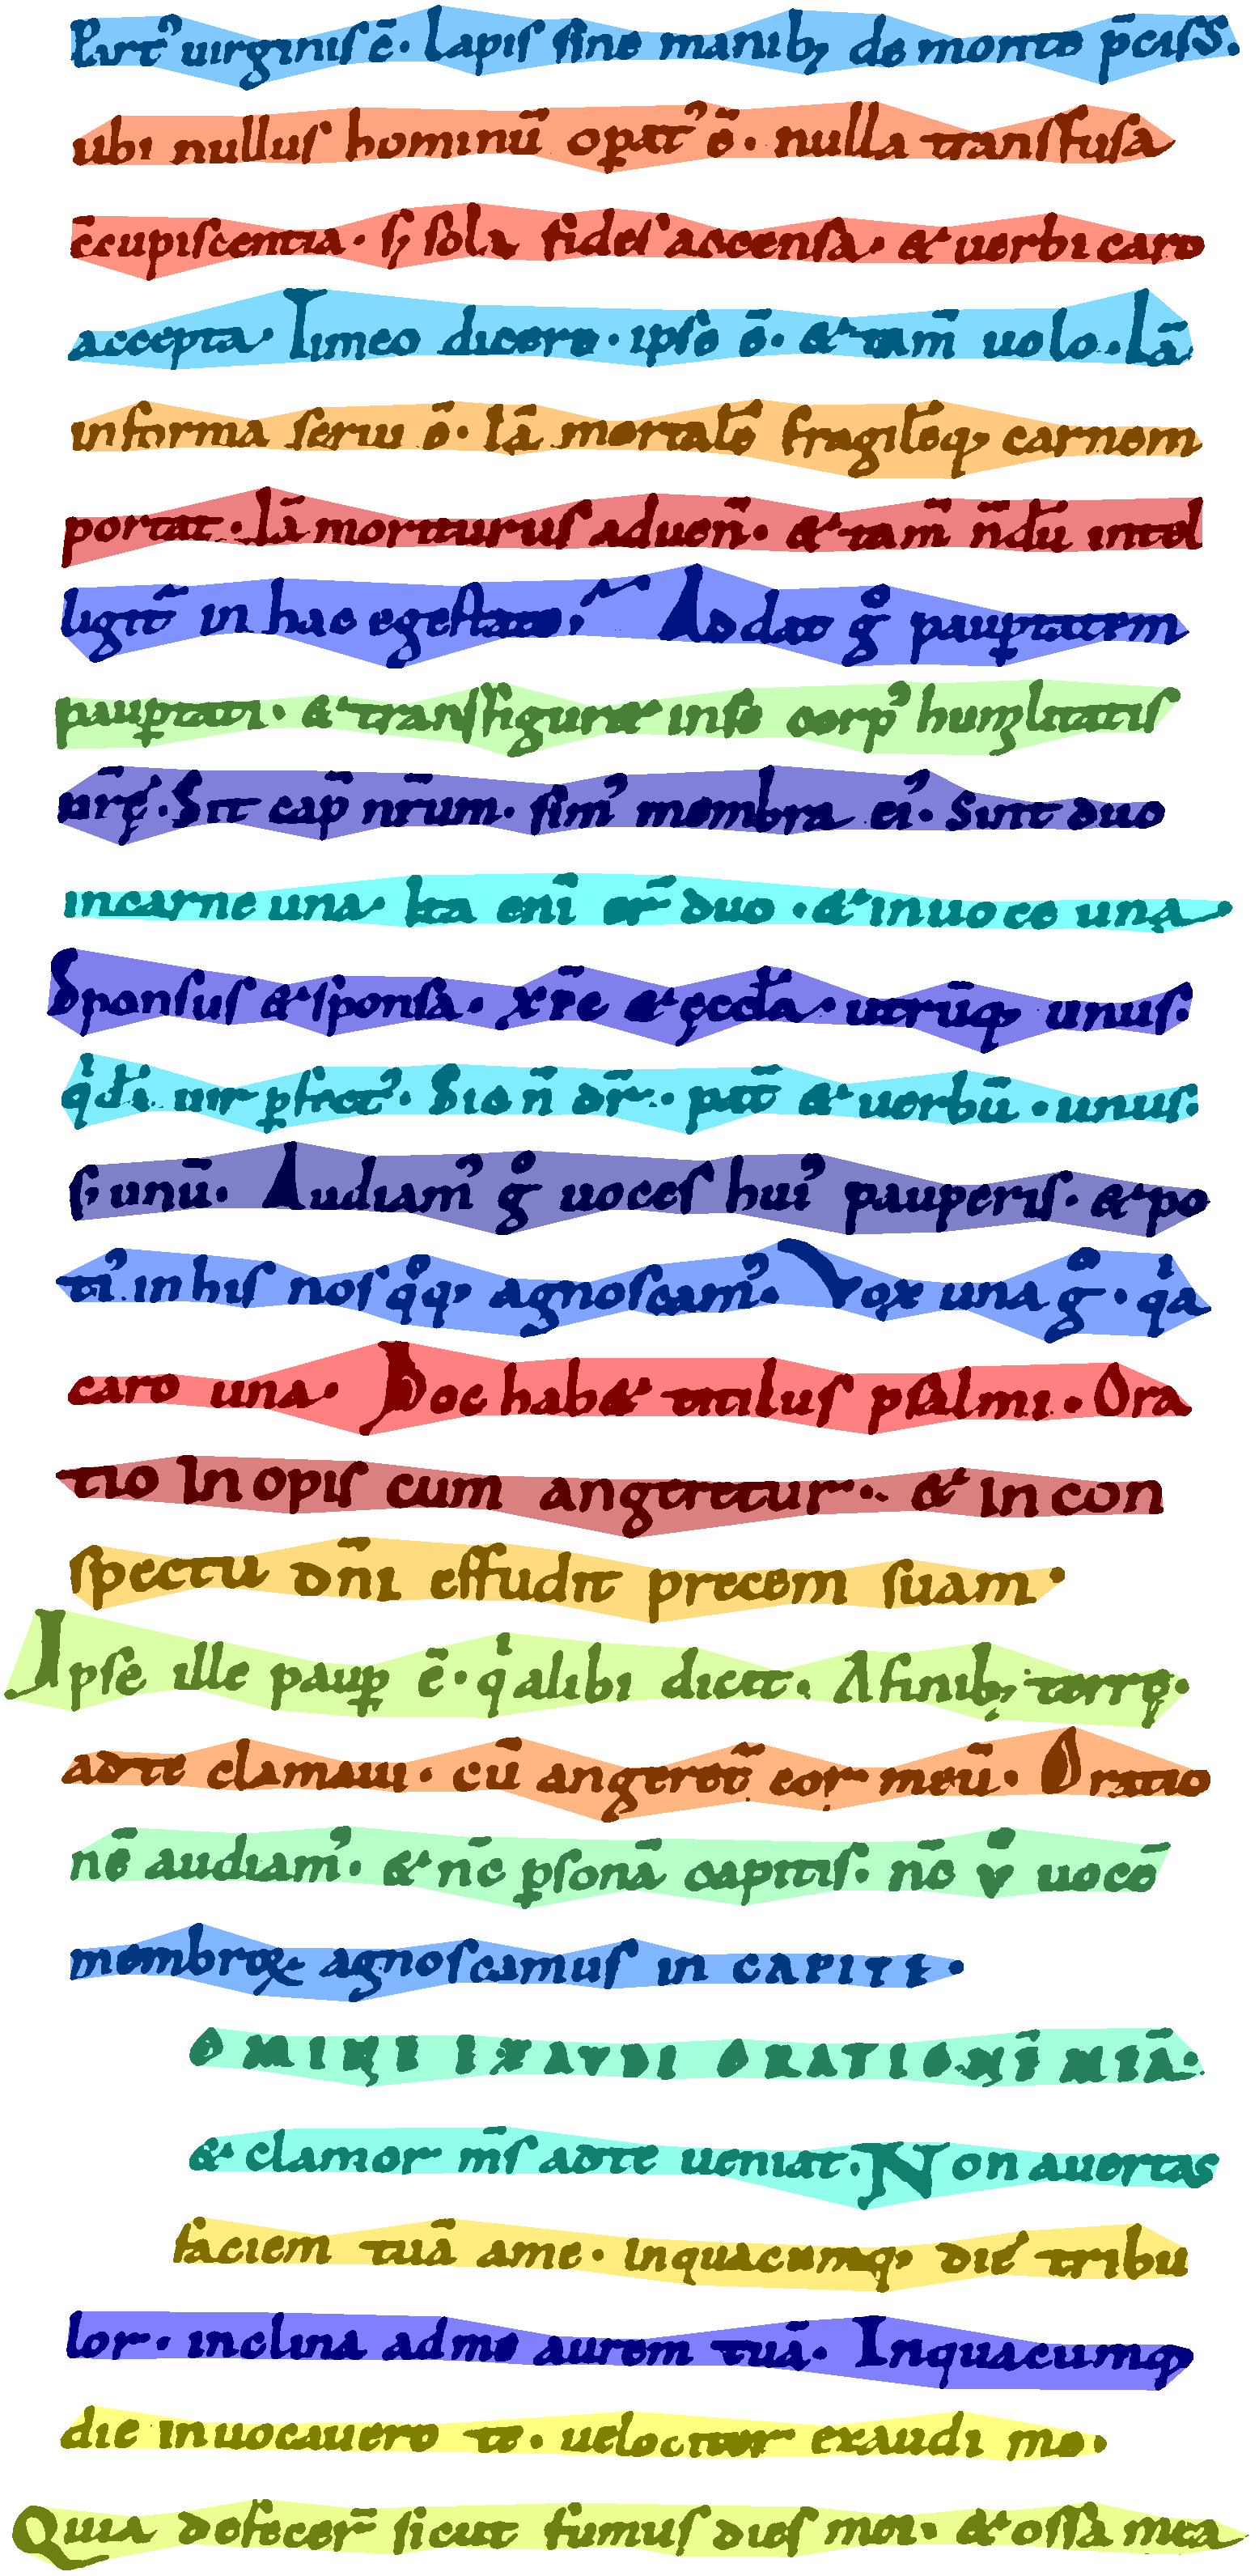 Part᾽ uirginis ē. Lapis sine manib; de monte p̄cisꝰ.
ubi nullus hominū opat᾽ ē. nulla transfusa
c̄cupiscentia. s; sola fides accensa. & uerbi caro
accepta. Timeo dicere. ipse ē. & tam̄ uolo. Iā
in forma serui ē. Iā mortalē fragilēq; carnem
portat. Iā moriturus aduen̄. & tam̄ n̄dū intel
ligit᷑ in hac egestate; Addat g° paup̱tatem
paup̱tati. & transfiguret in se corp᾽ humilitatis
ur̄ę. Sit cap̄ nr̄um. sim᾽ membra ei᾽. Sint duo
in carne una. Ita enī er̄ duo. & in uoce una.
Sponsus & sponsa. xp̄c & ęccła. utrūq; unus.
q'dā uir p̱fect᾽. Sic n̄ dr̄. patē & uerbū. unus.
s; unū. Audiam᾽ g° uoces hui᾽ pauperis. & po
ti᾽ in his nos q°q; agnoscam᾽. Vox una g°. q'a
caro una. Hoc habet titulus psalmi. Ora
tio Inopis cum angeretur. & in con
spectu dn̄i effudit precem suam.
Ipse ille paup̱ ē. q' alibi dicit. A finib; terrę.
ad te clamaui. cū angeret᷑ cor meū. Oratio
nē audiam᾽. & nc̄ p̱sonā capitis. nc̄ v° uocē
membroꝝ agnoscamus in CAPITE.
OMINE EXAVDI ORATIONĒ MEĀ.
& clamor ms̄ ad te ueniat. Non auertas
faciem tuā a me. In quacumq; die tribu
lor. inclina ad me aurem tuā. In quacumq;
die inuocauero te. uelociter exaudi me.
Quia defecer̄ sicut fumus dies mei. & ossa mea